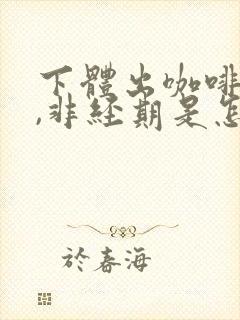 下體出咖啡
,非經期是怎
於春海